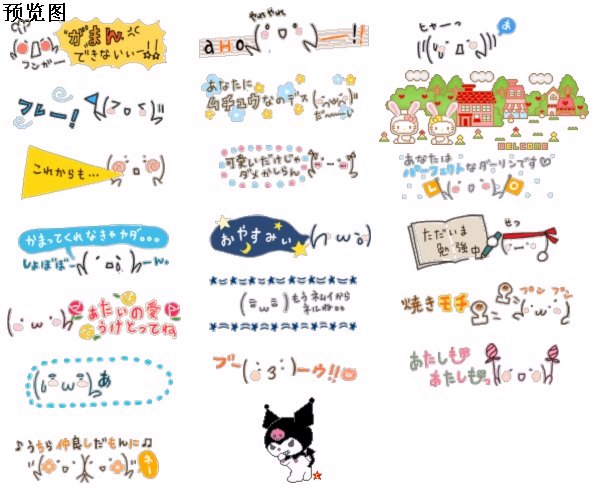 预览图
がまん
できないぃー!!
フンガー
やれやれ
aHo
ー!!
ヒャーっ
あ
フレー!
あなたに
ムチュウなのデス
だーーい
WELCOME
これからも…
可愛いだけじゃ
ダメかしらん
あなたは
パーフェクトなダーリンです♡
LO
かまってくれなきゃヤダ。。。
しょぼぼー
ーん。
おやすみぃ
ただいま
勉強中
せっ
あたいの愛
うけとってね
もうネムイから
ネルね。。
焼きモチ
プンプン
あ
ブー
ーウ!!
あたしも
あたしもっ
♪うちら仲良しだもんに♫
ねー